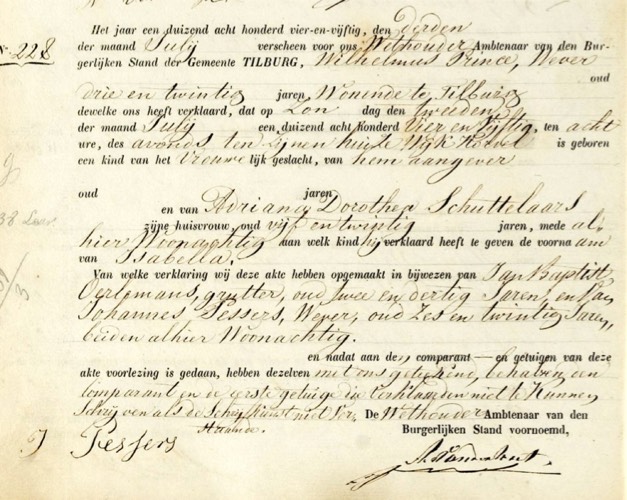 Het jaar een duizend acht honderd vier-en-vijftig, den derden
N. 228 der maand July verscheen voor ons Wethouder Ambtenaar van den Bur-
gerlijken Stand der Gemeente TILBURG, Wilhelmus Prince, Wever
oud
drie en twintig jaren, Wonende te Tilburg
dewelke ons heeft verklaard, dat op Zon dag den tweeden
der maand July een duizend acht honderd Vier en Vijftig, ten acht
ure, des avonds ten zijnen huize Wijk is geboren
een kind van het Vrouwelijk geslacht, van hem aangever
oud jaren
en van Adriana Dorothea Schuttelaars
zijne huisvrouw, oud vijf en twintig jaren, mede al-
hier Woonachtig aan welk kind hij verklaard heeft te geven de voornaam
van Isabella.
Van welke verklaring wij deze akte hebben opgemaakt in bijwezen van Jan Baptist
Oerlemans, grutter, oud twee en dertig Jaren, en
Johannes Pessers, Wever, oud Zes en twintig Jaren,
beiden alhier Woonachtig.
en nadat aan den comparant en getuigen van deze
akte voorlezing is gedaan, hebben dezelven met ons geteekend, behalven den
Comparant en de eerste getuige die verklaarden niet te kunnen
Schrijven als de Schrijfkunst niet De Wethouder Ambtenaar van den
Staande. Burgerlijken Stand voornoemd,
J Pessers